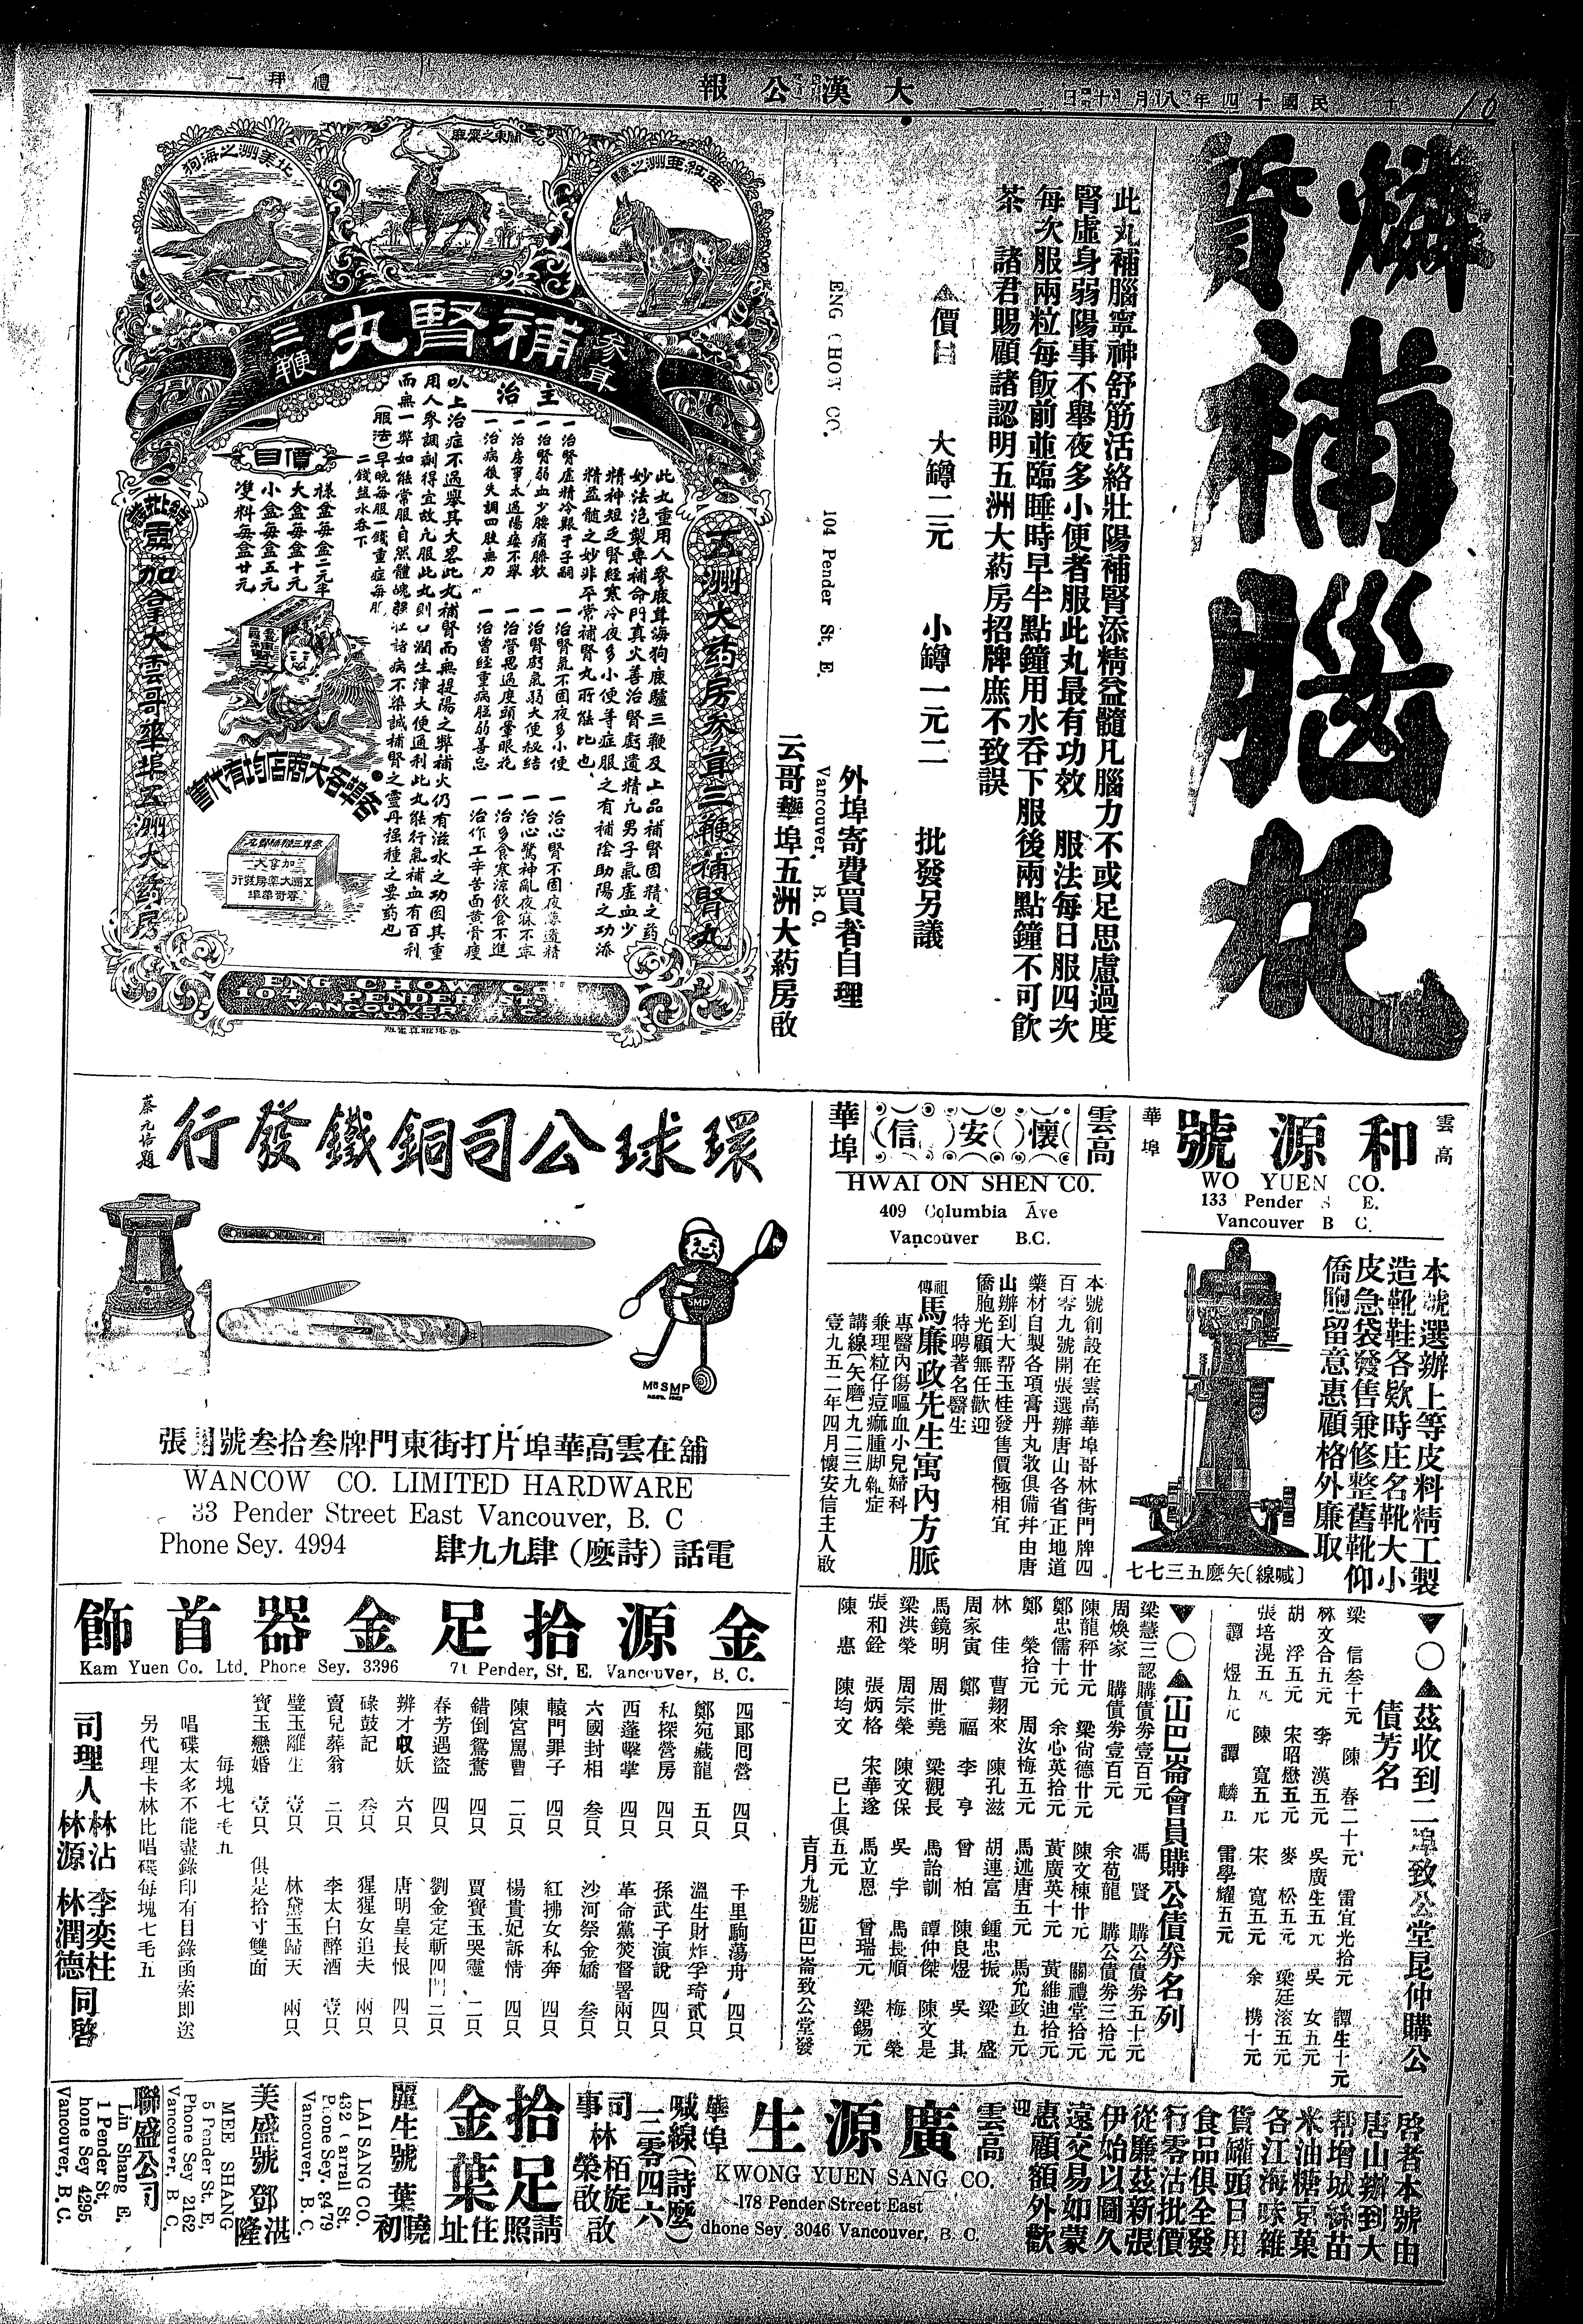 民國十四年八月十
大漢公報
禮拜一
燐質補腦丸
此丸補腦寧神舒筋活絡壯陽補腎添精益髓凡腦力不或足思慮過度
腎虛身弱陽事不舉夜多小便者服此丸最有功效 服法每日服四次
每次服兩粒每飯前並臨睡時早半點鐘用水吞下服後兩點鐘不可飲
茶 諸君賜顧諸認明五洲大葯房招牌庶不致誤
▲價目 大罇二元 小罇一元二 批發另議
外埠寄費買者自理
ENG CHOW CO. 104 Pender St. E. Vancouver, B. C.
云哥華埠五洲大葯房啟
北美洲之海狗
關東之麋鹿
亞細亞洲之驢
參茸
補腎丸
三鞭
五洲大葯房參茸三鞭補腎丸
主治
此丸重用人參鹿茸海狗鹿驢三鞭及上品補腎固精之葯
妙法泡製專補命門真火善治腎虧遺精凡男子氣虛血少
精神短乏腎經寒冷夜多小便等症服之有補陰助陽之功添
精益髓之妙非平常補腎丸所能比也
一治腎虛精冷艱于子嗣 一治腎氣不固夜多小便 一治心腎不固夜夢遺精
一治腎弱血少腰痛膝軟 一治腎虧氣弱大便秘結 一治心驚神亂夜寐不寧
一治房事太過陽痿不舉 一治營思過度頭暈眼花 一治多食寒涼飲食不進
一治病後失調四肢無力 一治曾經重病胆弱善忘 一治作工辛苦面黃骨瘦
以上治症不過舉其大畧此丸補腎而無提陽之弊補火仍有滋水之功因其重
用人參調劑得宜故凡服此丸則口潤生津大便通利此丸能行氣補血有百利
而無一弊如能常服自然體魄强壯諸病不染誠補腎之靈丹强種之要葯也
(服法)早晚每服一錢重症每服
二錢盐水吞下
價目
樣盒每盒二元半
大盒每盒十元
小盒每盒五元
雙料每盒廿元
各埠各大商店均有代售
加拿大
五洲大葯房發行
雲哥華埠
加拿大雲哥華埠五洲大葯房
ENG CHOW CO
104 PENDER ST. E.
VANCOUVER
雲高
和源號
華埠
WO YUEN CO.
133 Pender S E.
Vancouver B C.
本號選辦上等皮料精工製
造靴鞋各欵時庄名靴大小
皮急袋發售兼修整舊靴仰
僑胞留意惠顧格外廉取
(喊線)矢麼五三七七
雲高
懷安信
華埠
HWAI ON SHEN CO.
409 Columbia Ave
Vancouver B.C.
本號創設在雲高華埠哥林街門牌四
百零九號開張選辦唐山各省正地道
藥材自製各項膏丹丸散俱備幷由唐
山辦到大帮玉桂發售價極相宜
僑胞光顧無任歡迎
特聘著名醫生
祖傳馬廉政先生寓內方脈
專醫內傷嘔血小兒婦科
兼理粒仔痘癤腫脚雜症
講線(矢磨)九二三九
壹九五二年四月懷安信主人啟
環球公司銅鐵發行
蔡元培題
SMP
Mr SMP
舖在雲高華埠片打街東門牌叁拾叁號開張
WANCOW CO. LIMITED HARDWARE
33 Pender Street East Vancouver, B. C
Phone Sey. 4994
電話(詩麼)肆九九肆
▼○▲茲收到二埠致公堂昆仲購公
債芳名
梁 信叁十元 陳 春二十元 雷宜光拾元 譚生十元
林文合五元 李 漢五元 吳廣生五元 吳 女五元
胡 浮五元 宋昭懋五元 麥 松五元 梁廷滚五元
張培滉五元 陳 寬五元 宋 寬五元 余 携十元
譚 煜五元 譚 麟五 雷學耀五元
▼○▲冚巴崙會員購公債劵名列
梁慧三認購債劵壹百元 馮 賢 購公債劵五十元
周煥家 購債劵壹百元 余苞龍 購公債劵三拾元
陳龍秤廿元 梁尙德廿元 陳文棟廿元 關禮堂拾元
鄭忠儒十元 余心英拾元 黃廣英十元 黃維廸拾元
鄭 榮拾元 周汝梅五元 馬述唐五元 馬允政五元
林 佳 曹翔來 陳孔滋 胡連富 鍾忠振 梁 盛
周家寅 鄭 福 李 亨 曾 柏 陳良煜 吳 其
馬鏡明 周世堯 梁觀長 馬詒訓 譚仲傑 陳文是
梁洪榮 周宗榮 陳文保 吳 宇 馬長順 梅 榮
張和銓 張炳格 宋華遂 馬立恩 曾瑞元 梁錫元
陳 惠 陳均文 已上俱五元
吉月九號冚巴崙致公堂發
金源拾足金器首飾
Kam Yuen Co. Ltd. Phone Sey. 3396 71 Pender, St. E. Vancouver, B. C.
四郞回營 四只 千里駒蕩舟 四只
鄭宛藏龍 五只 溫生財炸孚琦貳只
私探營房 四只 孫武子演說 四只
西蓬擊掌 四只 革命黨焚督署兩只
六國封相 叁只 沙河祭金嬌 叁只
轅門罪子 四只 紅拂女私奔 四只
陳宮罵曹 二只 楊貴妃訴情 四只
錯倒鴛鴦 四只 賈寶玉哭靈 二只
春芳遇盜 四只 劉金定斬四門二只
辨才収妖 六只 唐明皇長恨 四只
碌鼓記 叁只 猩猩女追夫 兩只
賣兒葬翁 二只 李太白醉酒 壹只
璧玉離生 壹只 林黛玉歸天 兩只
寶玉戀婚 壹只 俱是拾寸雙面
每塊七毛九
唱碟太多不能盡錄印有目錄函索即送
另代理卡林比唱碟每塊七毛五
司理人 林沾 李奕柱 林源 林潤德 同啓
啓者本號由
唐山辦到大
帮增城絲苗
米油糖京菓
各江海味雜
貨罐頭日用
食品俱全發
行零沽批價
從廉茲新張
伊始以圖久
遠交易如蒙
惠顧額外歡
迎
雲高
廣源生
華埠
KWONG YUEN SANG CO.
178 Pender Street East
dhone Sey. 3046 Vancouver, B. C.
喊線(詩麼)
三零四六
司事林栢旋榮啟
拾足金葉
請照住址
麗生號 葉曉初
LAI SANG CO.
432 Carrall St.
Phone Sey. 8479
Vancouver, B. C.
美盛號 鄧湛隆
MEE SHANG
5 Pender St. E,
Phone Sey 2162
Vancouver, B. C.
聯盛公司
Lin Shang E.
1 Pender St.
hone Sey 4295
Vancouver, B. C.